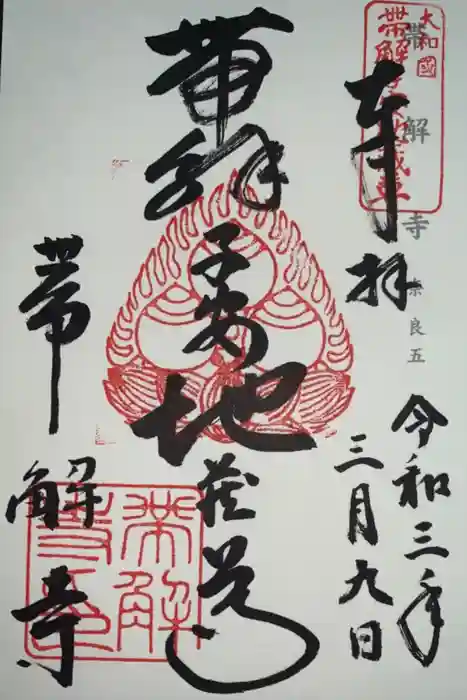 大和國
帯解子安地蔵尊
帯解寺
奈良五
奉拝
令和三年
三月九日
帯解
子安
地
蔵尊
帯解寺
帯解寺印